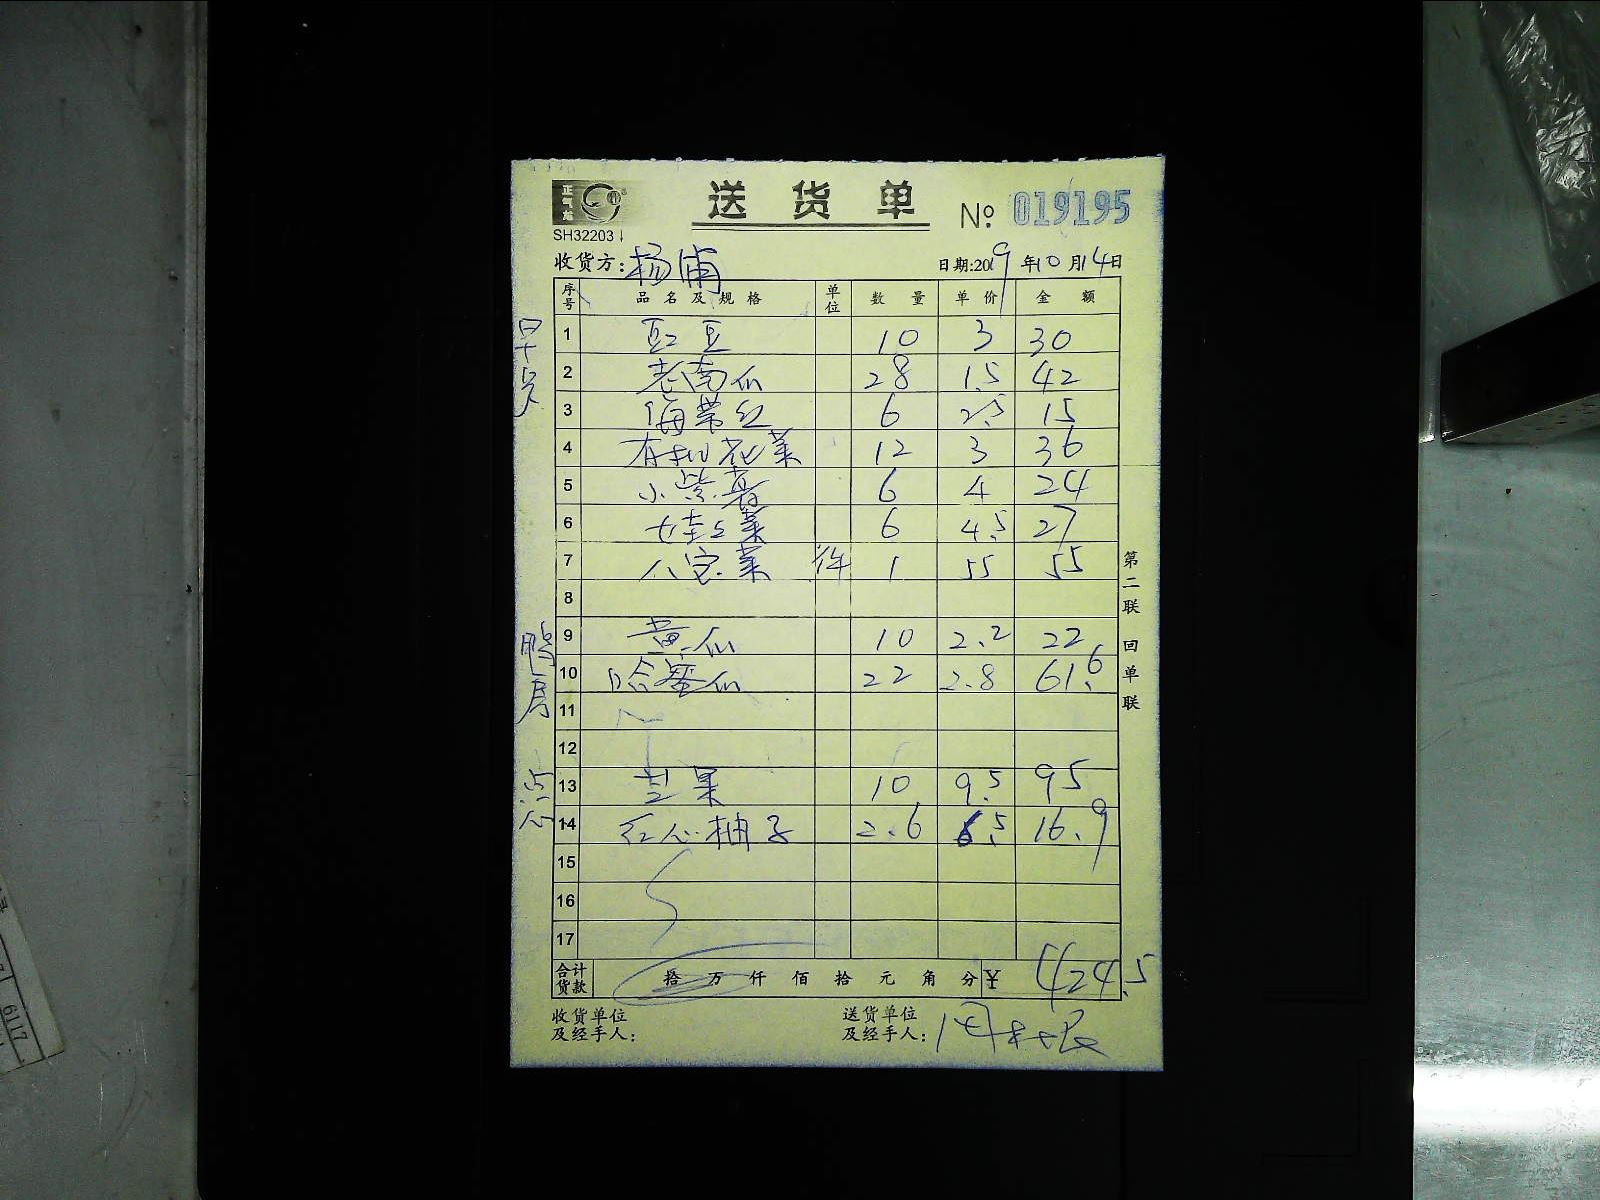 正气龙
送货单
№ 019195
SH32203
收货方:杨浦
日期:2019年10月14日
序号 品名及规格 单位 数量 单价 金额
早点
1 豇豆 10 3 30
2 老南瓜 28 1.5 42
3 海带丝 6 2.5 15
4 有机花菜 12 3 36
5 小紫薯 6 4 24
6 娃娃菜 6 4.5 27
7 八宝菜 件 1 55 55
8
鸭房
9 黄瓜 10 2.2 22
10 哈蜜瓜 22 2.8 61.6
11
12
点心
13 芒果 10 9.5 95
14 红心柚子 2.6 6.5 16.9
15
16
17
合计货款 拾万仟佰拾元角分 ¥ 424.5
收货单位及经手人:
送货单位及经手人:
第二联 回单联
6117